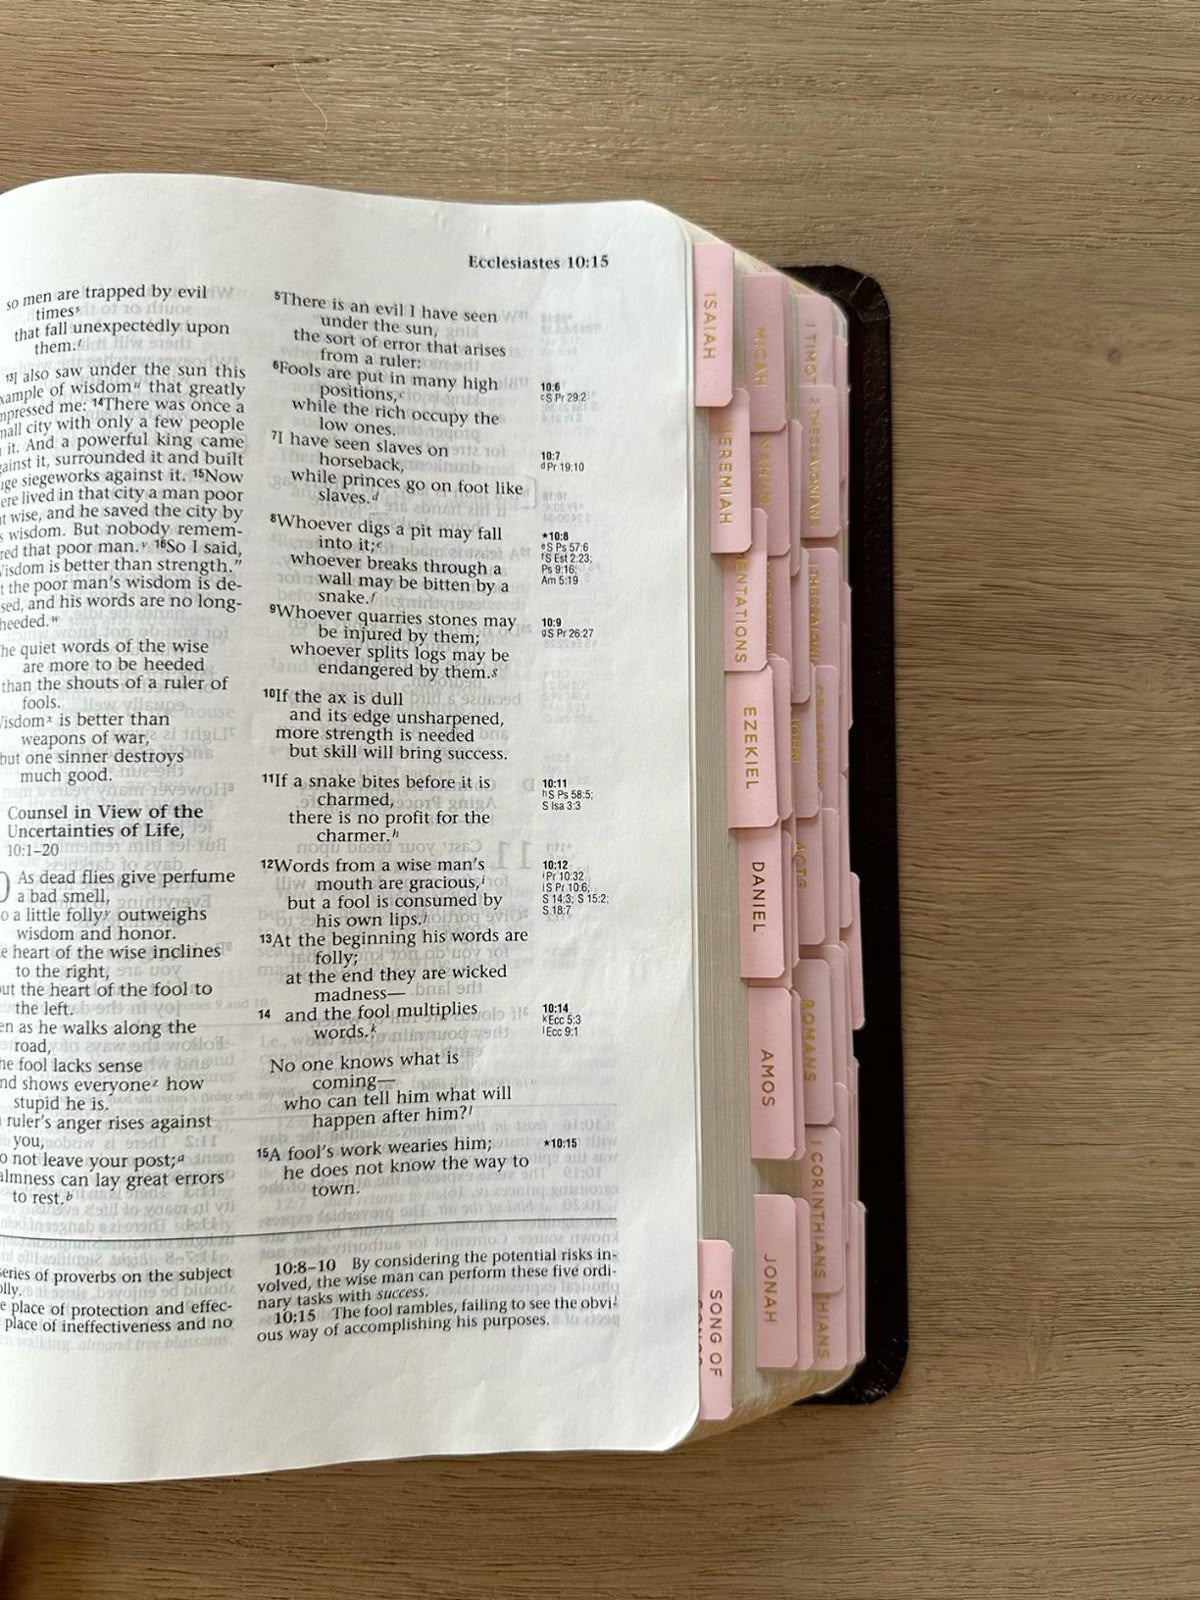 Ecclesiastes 10:15
so men are trapped by evil
timesˢ
that fall unexpectedly upon
them.ᵗ
¹³I also saw under the sun this
of wisdomᵘ that greatly
me: ¹⁴There was once a
city with only a few people
it. And a powerful king came
it, surrounded it and built
siegeworks against it. ¹⁵Now
lived in that city a man poor
wise, and he saved the city by
wisdom. But nobody remem-
that poor man.ᵛ ¹⁶So I said,
is better than strength.”
the poor man's wisdom is de-
and his words are no long-
heeded.ʷ
quiet words of the wise
are more to be heeded
than the shouts of a ruler of
fools.
is better than
weapons of war,
but one sinner destroys
much good.
Counsel in View of the
Uncertainties of Life,
10:1–20
As dead flies give perfume
a bad smell,
a little follyʸ outweighs
wisdom and honor.
heart of the wise inclines
to the right,
but the heart of the fool to
the left.
as he walks along the
road,
fool lacks sense
and shows everyoneᶻ how
stupid he is.
ruler's anger rises against
you,
not leave your post;ᵃ
can lay great errors
to rest.ᵇ
series of proverbs on the subject
place of protection and effec-
place of ineffectiveness and no
⁵There is an evil I have seen
under the sun,
the sort of error that arises
from a ruler:
⁶Fools are put in many high
positions,ᶜ
while the rich occupy the
low ones.
⁷I have seen slaves on
horseback,
while princes go on foot like
slaves.ᵈ
⁸Whoever digs a pit may fall
into it;ᵉ
whoever breaks through a
wall may be bitten by a
snake.ᶠ
⁹Whoever quarries stones may
be injured by them;
whoever splits logs may be
endangered by them.ᵍ
¹⁰If the ax is dull
and its edge unsharpened,
more strength is needed
but skill will bring success.
¹¹If a snake bites before it is
charmed,
there is no profit for the
charmer.ʰ
¹²Words from a wise man's
mouth are gracious,ⁱ
but a fool is consumed by
his own lips.ʲ
¹³At the beginning his words are
folly;
at the end they are wicked
madness—
14 and the fool multiplies
words.ᵏ
No one knows what is
coming—
who can tell him what will
happen after him?ˡ
¹⁵A fool's work wearies him;
he does not know the way to
town.
10:8–10 By considering the potential risks in-
volved, the wise man can perform these five ordi-
nary tasks with success.
10:15 The fool rambles, failing to see the obvi-
ous way of accomplishing his purposes.
10:6
ᶜS Pr 29:2
10:7
ᵈPr 19:10
*10:8
ᵉS Ps 57:6
ᶠS Est 2:23;
Ps 9:16;
Am 5:19
10:9
ᵍS Pr 26:27
10:11
ʰS Ps 58:5;
S Isa 3:3
10:12
ⁱPr 10:32
ʲS Pr 10:6;
S 14:3; S 15:2;
S 18:7
10:14
ᵏEcc 5:3
ˡEcc 9:1
*10:15
ISAIAH
JEREMIAH
EZEKIEL
DANIEL
AMOS
JONAH
SONG OF
MICAH
NAHUM
JOHN
ACTS
ROMANS
I CORINTHIANS
2 THESSALONIANS